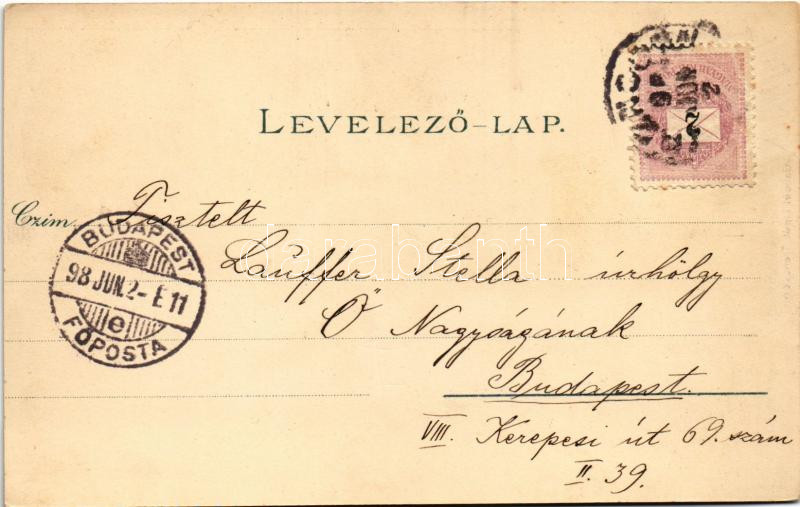 LEVELEZŐ-LAP.
2
Czim. Tisztelt
Lauffer Stella úrhölgy
Ő Nagyságának
Budapest.
VIII. Kerepesi út 69. szám
II. 39.
BUDAPEST
98 JUN. 2- E 11
e
FŐPOSTA
darabanth